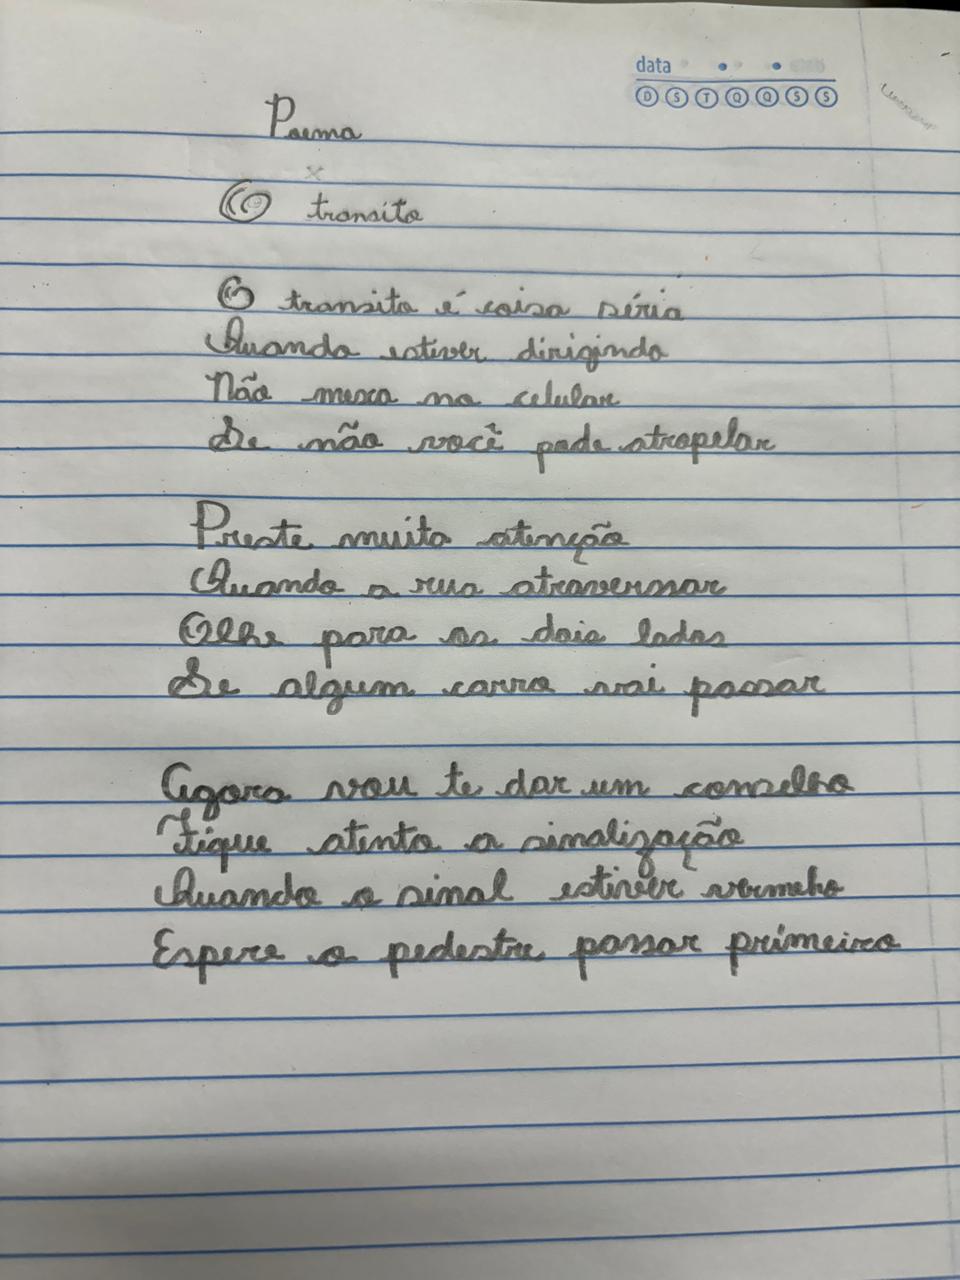 data
D S T Q Q S S
Poema
O transito
O transito é coisa séria
Quando estiver dirigindo
Não mexa no celular
Se não você pode atropelar
Preste muita atenção
Quando a rua atravessar
Olhe para os dois lados
Se algum carro vai passar
Agora vou te dar um conselho
Fique atento a sinalização
Quando o sinal estiver vermeho
Espere o pedestre passar primeiro